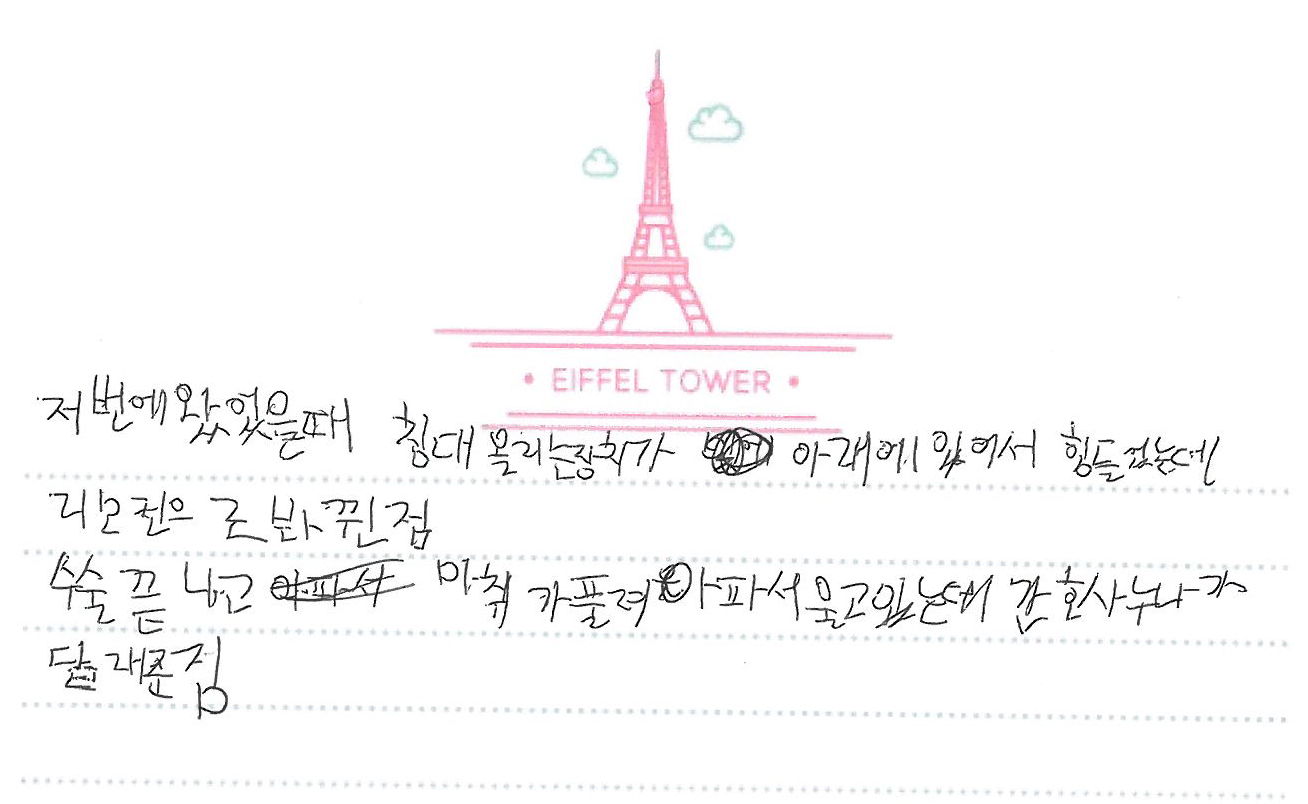 • EIFFEL TOWER •
저번에 왔었을때 침대 올리는장치가 아래에 있어서 힘들었는데
리모컨으로 바뀐점
수술 끝나고 마취가풀려 아파서 울고있는데 간호사누나가
달래준점